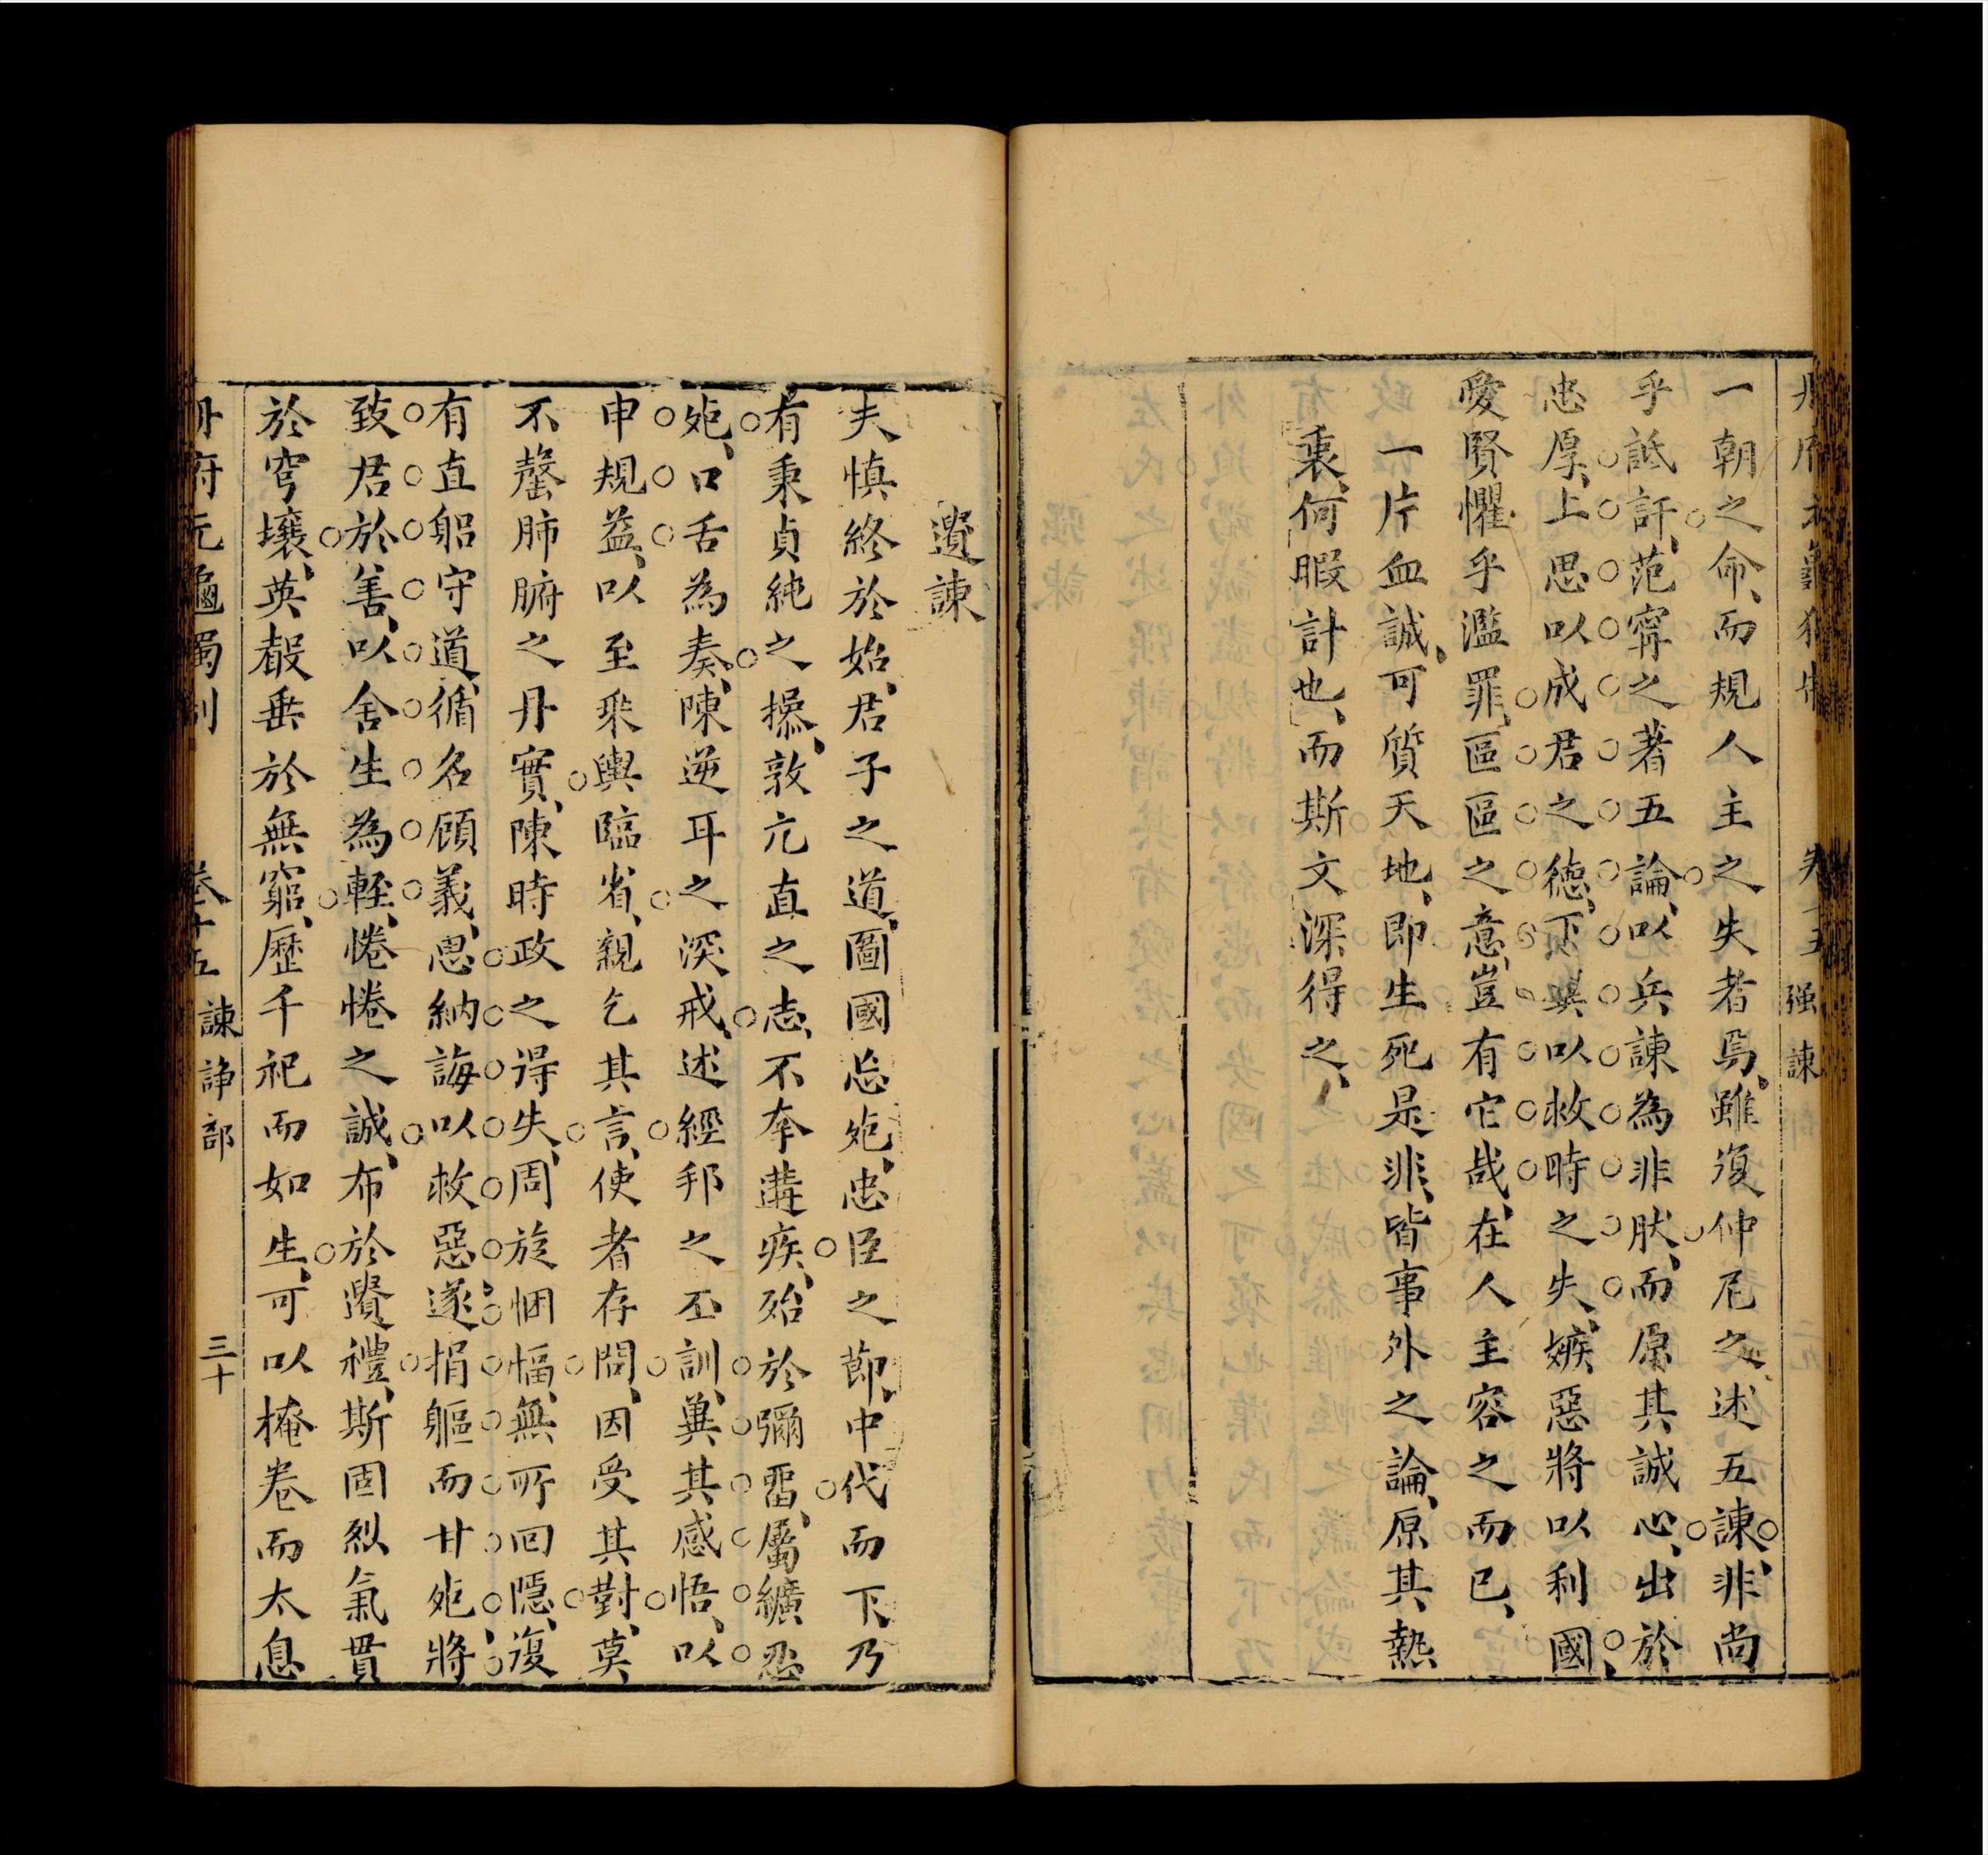 一朝之命、而規人主之失者焉、雖復仲尼之述五諫、非尚
乎詆訐、范甯之著五論、以兵諫為非、肰而原其誠心、出於
忠厚、上思以成君之德、下兾以救時之失、嫉惡將以利國、
愛賢懼乎濫罪、區區之意、豈有它哉、在人主容之而已、
一片血誠、可質天地、即生死是非、皆事外之論、原其熱
衷、何暇計也、而斯文深得之、
強諫
遺諫
夫慎終於始、君子之道、圖國忘死、忠臣之節、中代而下、乃
有秉貞純之操、敦亢直之志、不幸遘疾、殆於彌畱、屬纊忍
死、口舌為奏、陳逆耳之深戒、述經邦之丕訓、兾其感悟、以
申規益、以至乘輿臨省、親乞其言、使者存問、因受其對、莫
不罄肺腑之丹實、陳時政之得失、周旋悃愊、無所回隱、復
有直躬守道、循名顧義、思納誨以救惡、遂捐軀而甘死、將
致君於善、以舍生為輕、惓惓之誠、布於瓚禮、斯固烈氣貫
於穹壤、英聲垂於無窮、歷千祀而如生、可以掩卷而太息
冊府元龜獨制 卷十五 諫諍部 三十